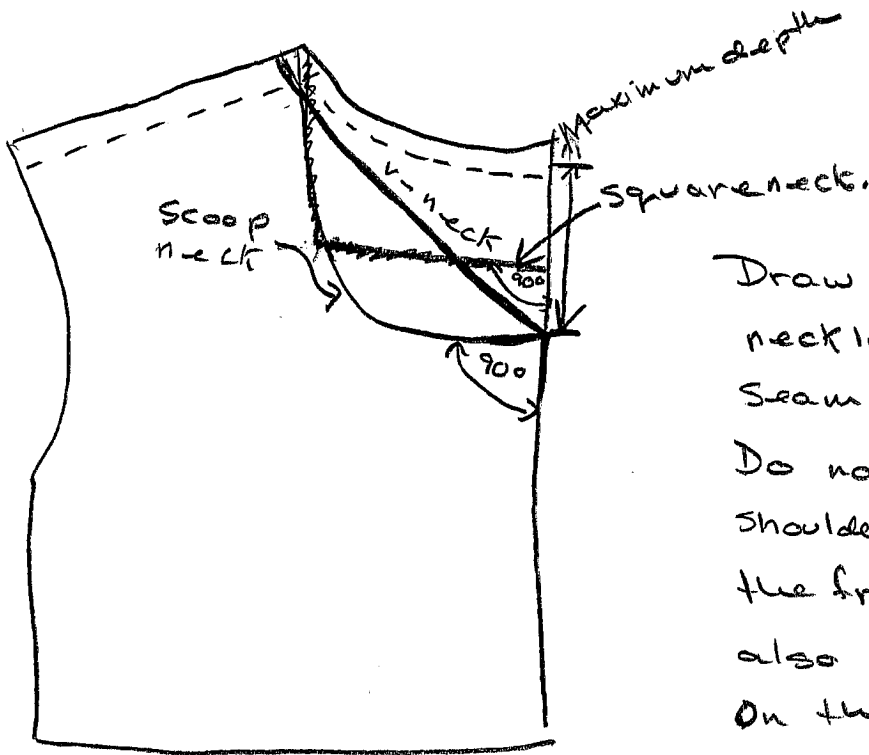 Maximum depth
Square neck.
v-neck
Scoop
neck
900
900
Draw
neckl
Seam
Do no
Shoulde
the fr
also
On th